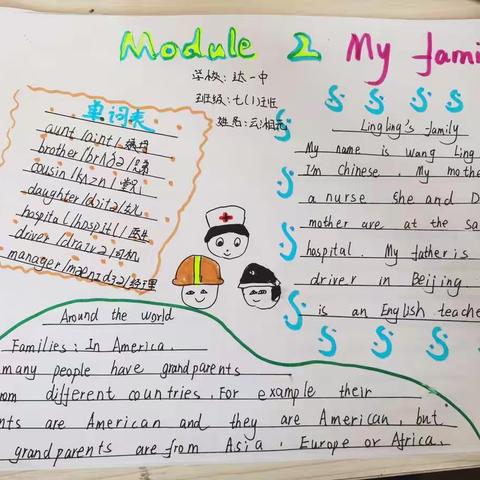 Module 2 My fami
学校：达一中
班级：七(1)班
姓名：云湘元
单词表
aunt /aint/
brother /brʌðə/
cousin /kʌzn/
daughter /dɔitə/ 女儿
hospital /hɒspitl/ 医生
driver /draivə/ 司机
manager /mænidʒə/ 经理
Lingling's family
My name is Wang Ling
I'm Chinese. My mothe
a nurse she and D
mother are at the sa
hospital. My father is
driver in Beijing.
is an English teache
Around the world
Families: In America.
many people have grandparents
rom different countries. For example their
nts are American and they are American, but
grandparents are from Asia, Europe or Africa.